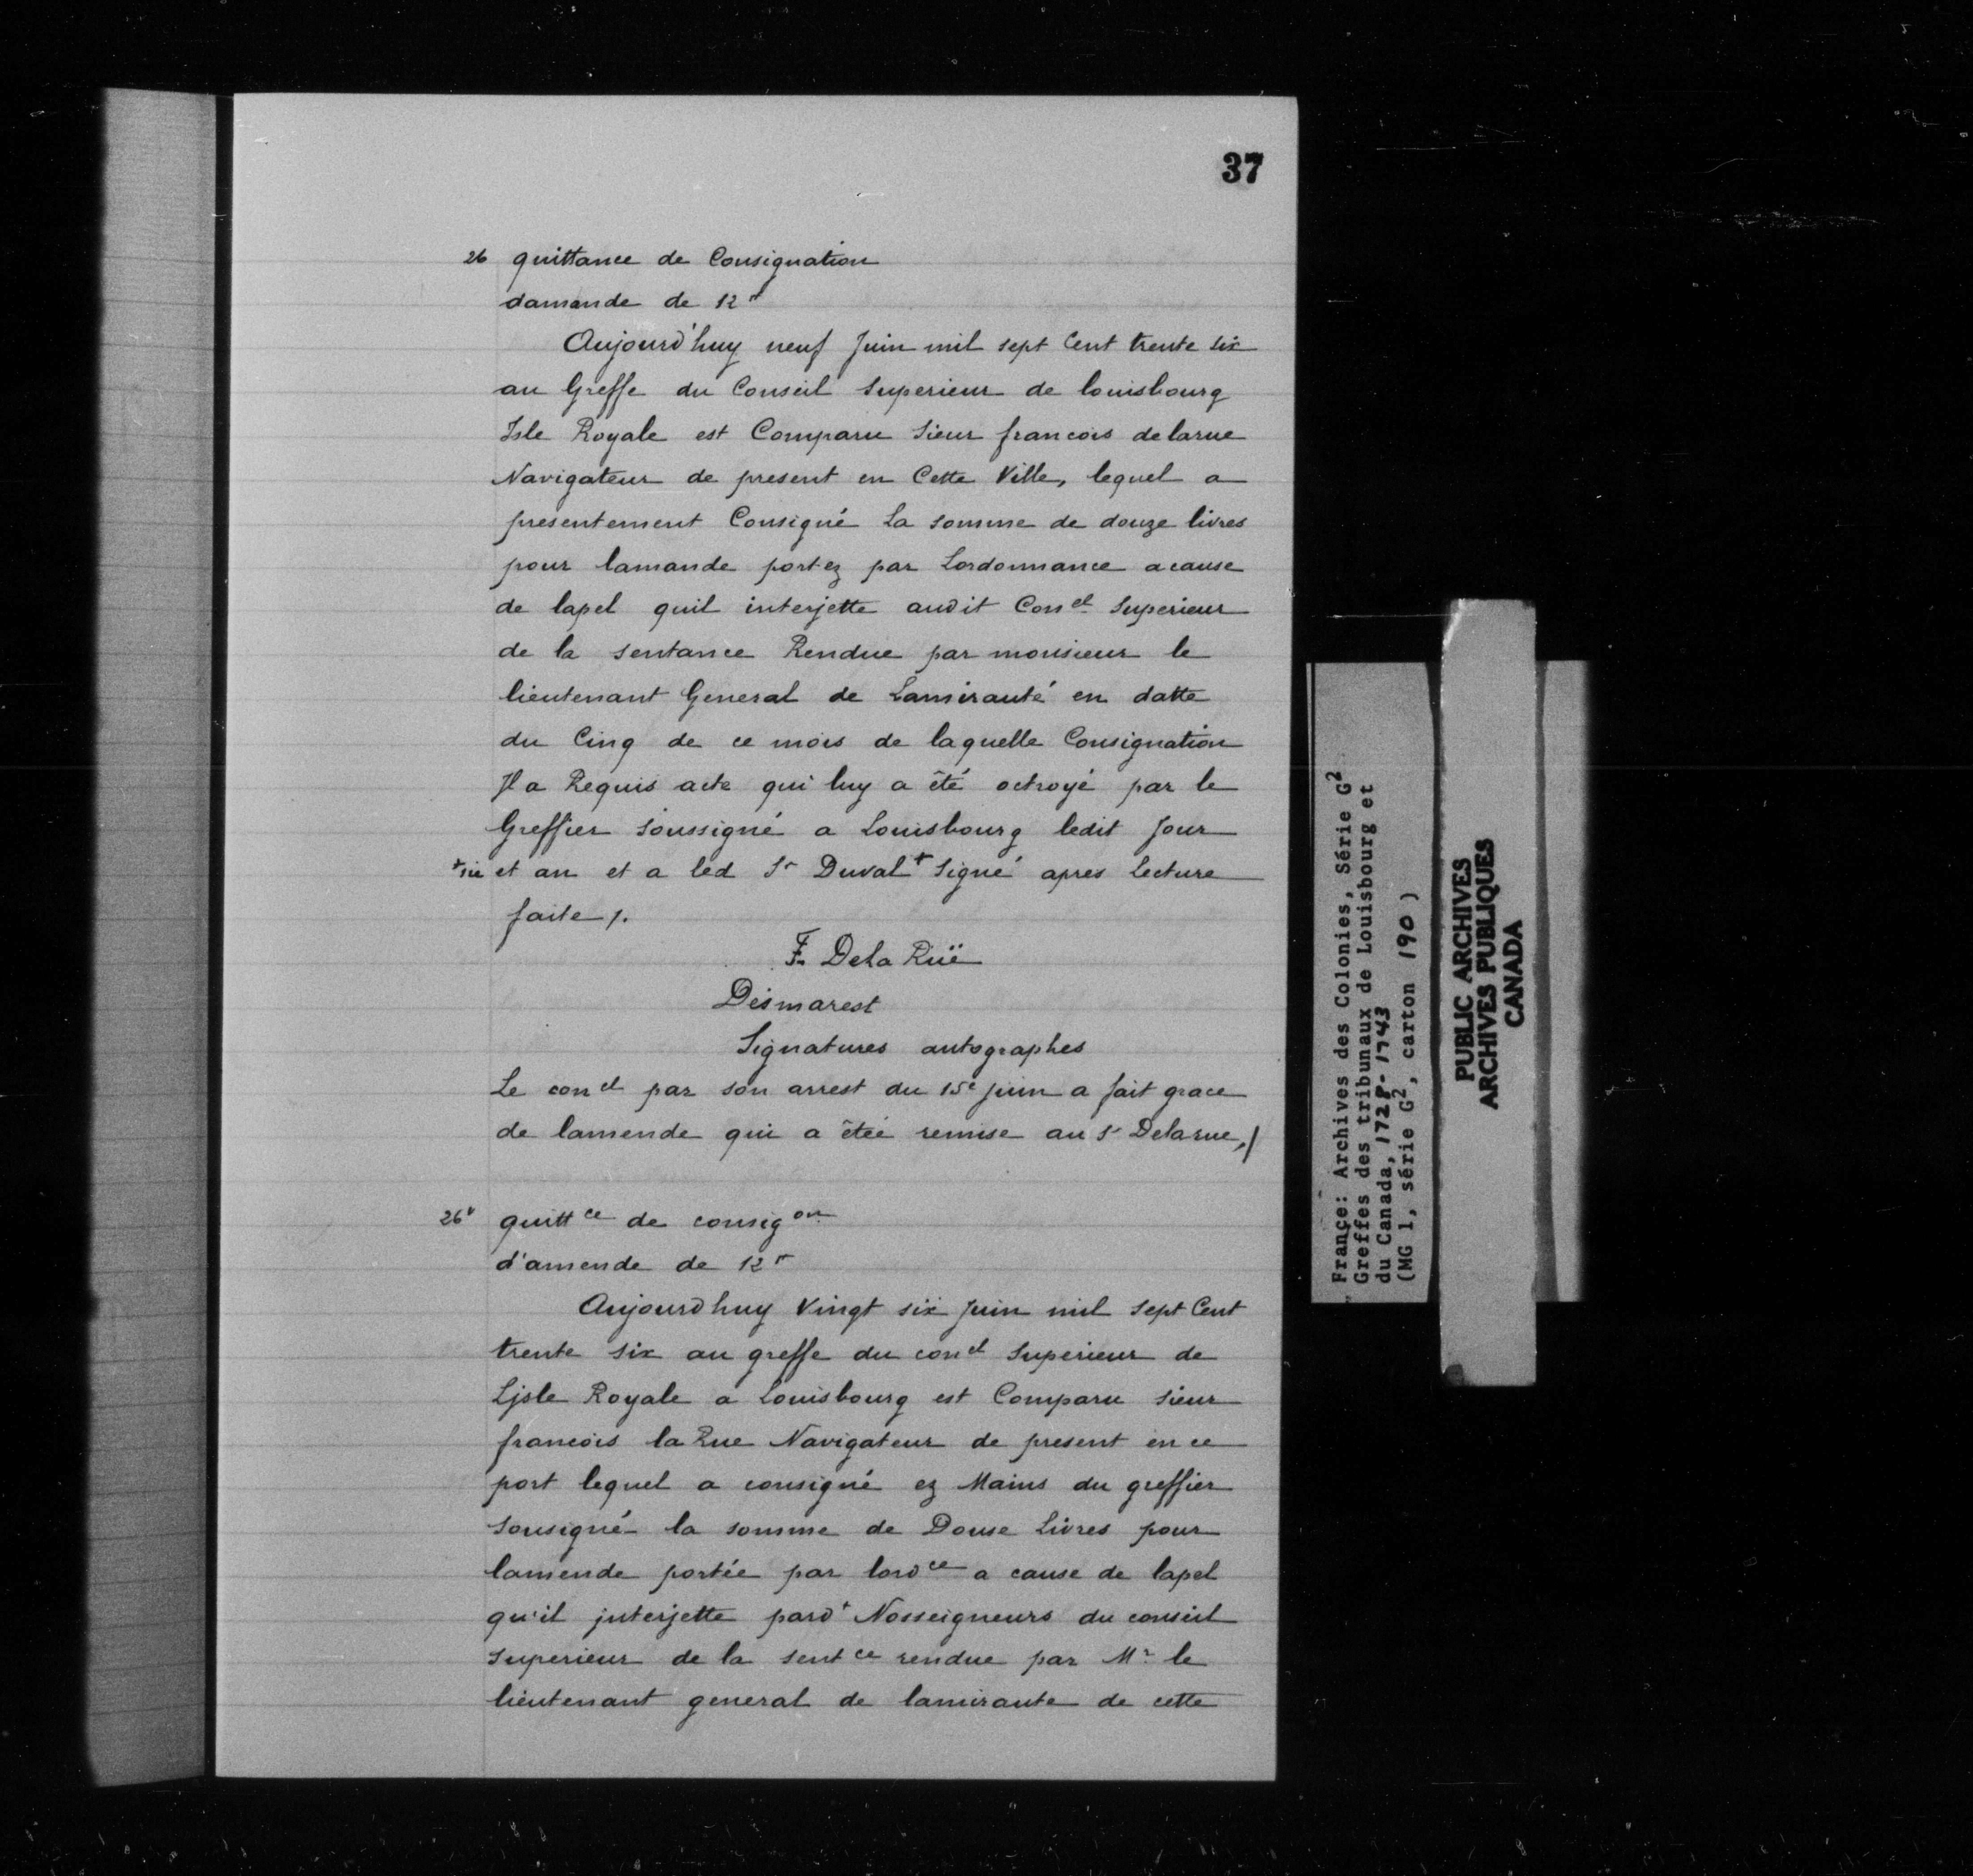 37
26 quittance de Consignation
damande de 12 ₶
Aujourd'huy neuf Juin mil sept Cent trente six
au Greffe du Conseil Superieur de louisbourg
Isle Royale est Comparu Sieur francois delarue
Navigateur de present en Cette Ville, lequel a
presentement Consigné La somme de douze livres
pour lamande portez par Lordonnance a cause
de lapel quil interjette audit Conel Superieur
de la sentance Rendue par monsieur le
lieutenant General de Lamirauté en datte
du Cinq de ce mois de laquelle Consignation
Il a Requis acte qui luy a été octroyé par le
Greffier Soussigné a Louisbourg ledit Jour
et an et a led Sr Duval + Signé apres Lecture
faite /.
F. Dela Rüe
Desmarest
Signatures autographes
Le conel par son arrest du 15e juin a fait grace
de lamende qui a êtée remise au Sr Delarue,/
26v quittce de consigon
d'amende de 12 ₶
Aujourdhuy Vingt six juin mil sept Cent
trente six au greffe du conel Superieur de
Ljsle Royale a Louisbourg est Comparu sieur
francois la Rue Navigateur de present en ce
port lequel a consigné ez Mains du greffier
Sousigné la somme de Douse Livres pour
lamende portée par lordce a cause de lapel
qu'il jnterjette pardt Nosseigneurs du conseil
Superieur de la sentce rendue par Mr le
lieutenant general de lamiraute de cette
France: Archives des Colonies, Série G2
Greffes des tribunaux de Louisbourg et
du Canada, 1728-1743
(MG 1, série G2, carton 190)
PUBLIC ARCHIVES
ARCHIVES PUBLIQUES
CANADA